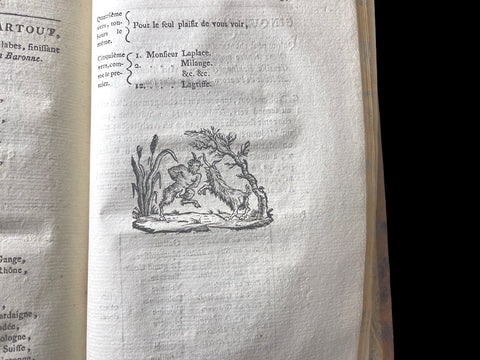 ARTOUT,
labes, finissant
Baronne.
Gange,
Rhône,
ardaigne,
ndée,
ologne,
Suisse
Quatrième
vers, tou-
jours le
même.
Pour le seul plaisir de vous voir,
Cinquième
vers, com-
me le pre-
mier.
1. Monsieur Laplace.
2. . . . Milange.
&c. &c.
12. . . . Lagriffe.